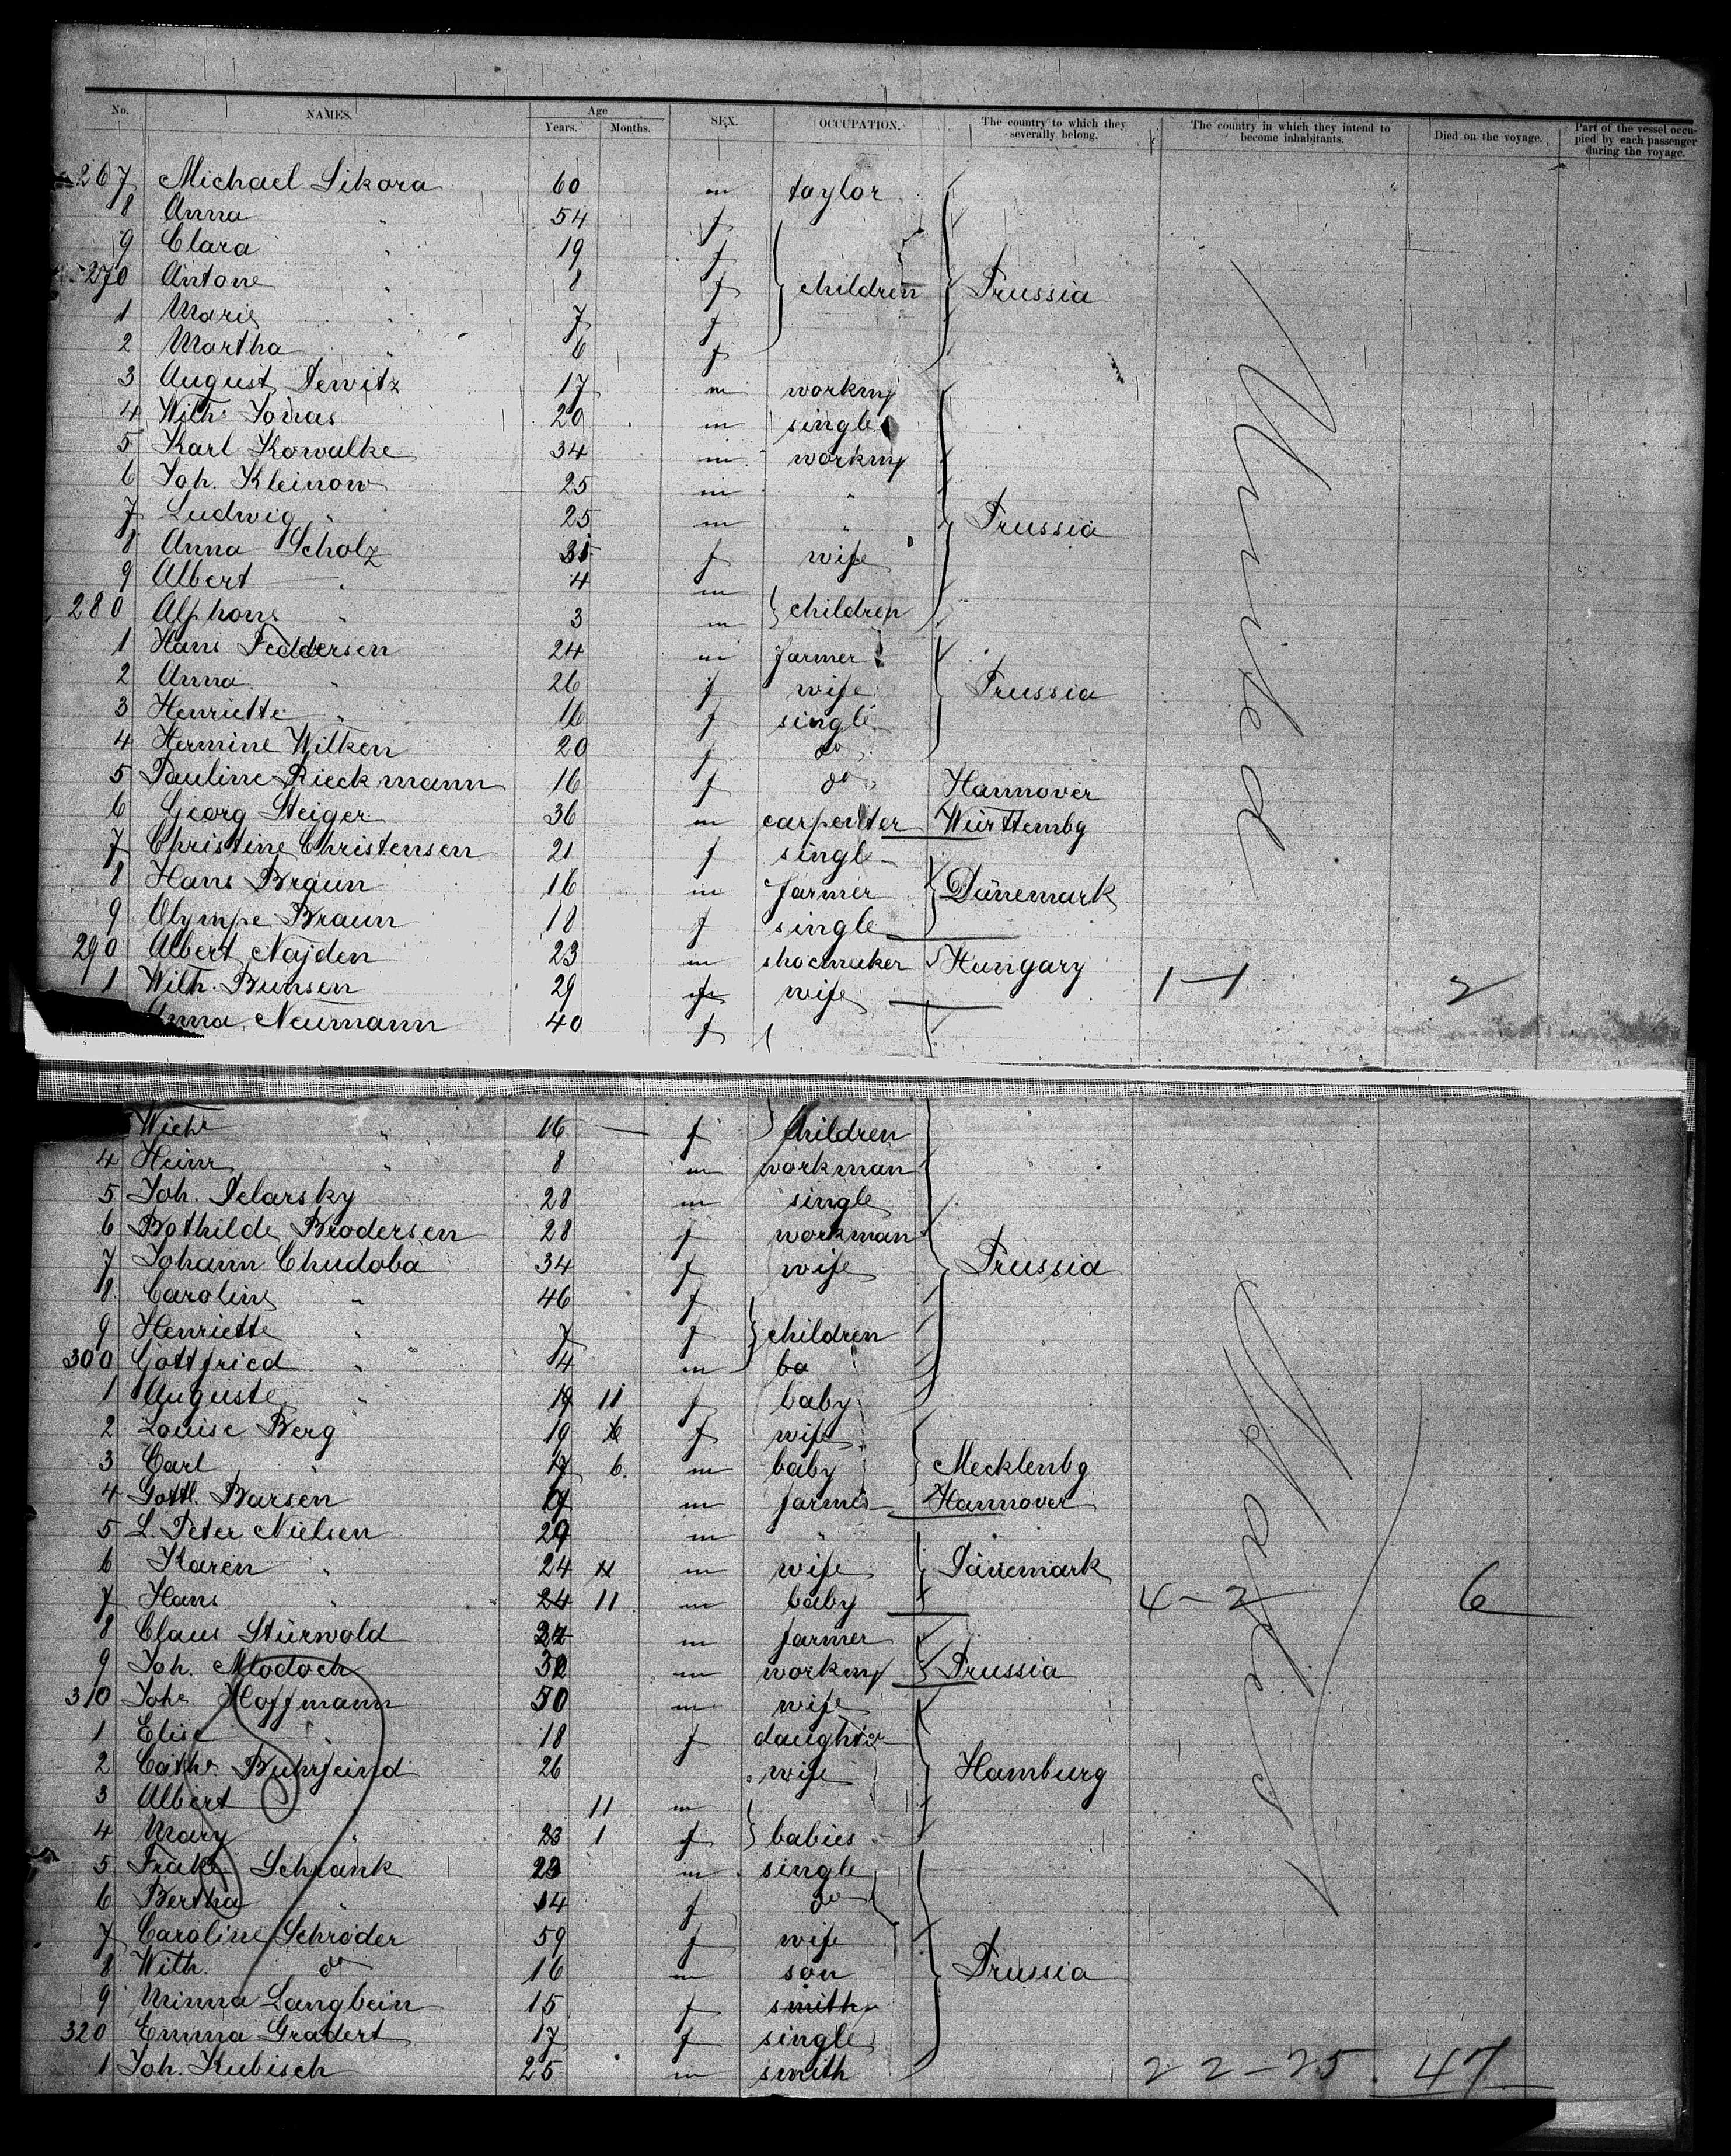 No. NAMES. Age Years. Months. SEX. OCCUPATION. The country to which they severally belong. The country in which they intend to become inhabitants. Died on the voyage. Part of the vessel occupied by each passenger during the voyage.
267 Michael Sikora 60 m taylor
8 Anna " 54 f
9 Clara " 19 f
270 Antone " 8 f children Prussia
1 Marie " 7 f
2 Martha " 6 f
3 August Dewitz 17 m workmg
4 Wilh. Jonas 20 m single
5 Karl Kowalke 34 m workmg
6 Joh. Kleinow 25 m "
7 Ludwig " 25 m " Prussia
8 Anna Scholz 35 f wife
9 Albert " 4 m
280 Alphons " 3 m children
1 Hans Feddersen 24 m farmer
2 Anna " 26 f wife Prussia
3 Henriette " 16 f single
4 Hermine Wilken 20 f do
5 Pauline Rieckmann 16 f do Hannover
6 Georg Steiger 36 m carpenter Württembg
7 Christine Christensen 21 f single
8 Hans Braun 16 m farmer Dänemark
9 Olympe Braun 18 f single
290 Albert Najden 23 m shoemaker Hungary
1 Wilh. Bunsen 29 wife 1-1 2
Anna Neumann 40 f
" 16 — f children
4 Heinr " 8 m workman
5 Joh. Pelarsky 28 m single
6 Bothilde Brodersen 28 f workman
7 Johann Chudoba 34 f wife Prussia
8 Caroline " 46 f
9 Henriette " 7 f children
300 Gottfried " 4 m
1 Auguste " 11 f baby
2 Louise Berg 19 f wife
3 Carl " 6 m baby Mecklenbg
4 Gottl. Barsen m farmer Hannover
5 L. Peter Nielsen 29 m "
6 Karen " 24 m wife Dänemark
7 Hans " 11 m baby 4-2 6
8 Claus Stürwold 24 m farmer
9 Joh. Mlodoch 32 m workmg Prussia
310 Johs Hoffmann 50 m wife
1 Elise " 18 f daughter
2 Cathr. Buhrfeind 26 wife Hamburg
3 Albert " 11 m
4 Mary " 1 f babies
5 Schrank 23 m single
6 Bertha " 14 f do
7 Caroline Schröder 59 f wife
8 Wilh. do 16 m son Prussia
9 Minna Langbein 15 f smith
320 Emma Gradert 17 f single
1 Joh. Kubisch 25 m smith 22-25 47